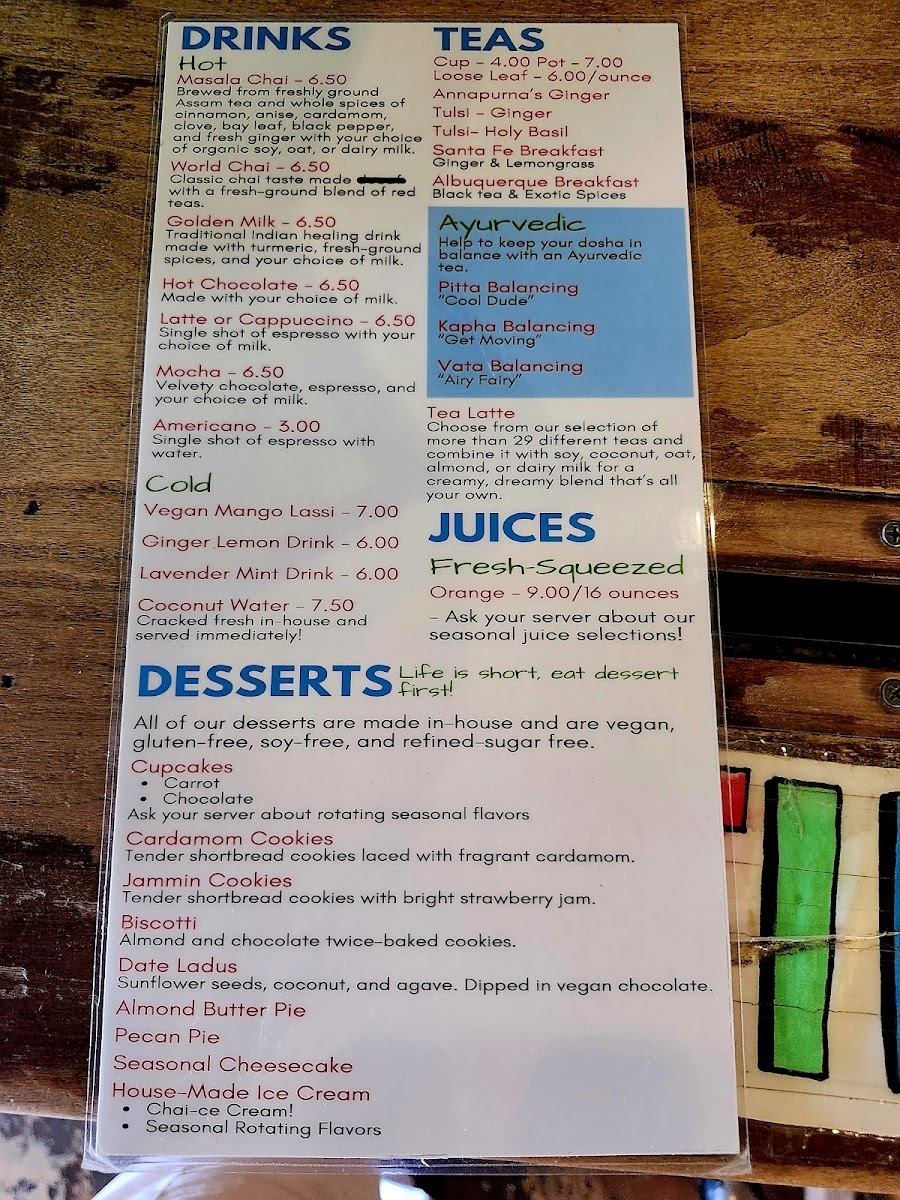 DRINKS
Hot
Masala Chai - 6.50
Brewed from freshly ground
Assam tea and whole spices of
cinnamon, anise, cardamom,
clove, bay leaf, black pepper,
and fresh ginger with your choice
of organic soy, oat, or dairy milk.
World Chai - 6.50
Classic chai taste made
with a fresh-ground blend of red
teas.
Golden Milk - 6.50
Traditional Indian healing drink
made with turmeric, fresh-ground
spices, and your choice of milk.
Hot Chocolate - 6.50
Made with your choice of milk.
Latte or Cappuccino - 6.50
Single shot of espresso with your
choice of milk.
Mocha - 6.50
Velvety chocolate, espresso, and
your choice of milk.
Americano - 3.00
Single shot of espresso with
water.
Cold
Vegan Mango Lassi - 7.00
Ginger Lemon Drink - 6.00
Lavender Mint Drink - 6.00
Coconut Water - 7.50
Cracked fresh in-house and
served immediately!
TEAS
Cup - 4.00 Pot - 7.00
Loose Leaf - 6.00/ounce
Annapurna's Ginger
Tulsi - Ginger
Tulsi- Holy Basil
Santa Fe Breakfast
Ginger & Lemongrass
Albuquerque Breakfast
Black tea & Exotic Spices
Ayurvedic
Help to keep your dosha in
balance with an Ayurvedic
tea.
Pitta Balancing
"Cool Dude"
Kapha Balancing
"Get Moving"
Vata Balancing
"Airy Fairy"
Tea Latte
Choose from our selection of
more than 29 different teas and
combine it with soy, coconut, oat,
almond, or dairy milk for a
creamy, dreamy blend that's all
your own.
JUICES
Fresh-Squeezed
Orange - 9.00/16 ounces
- Ask your server about our
seasonal juice selections!
DESSERTS
Life is short, eat dessert
first!
All of our desserts are made in-house and are vegan,
gluten-free, soy-free, and refined-sugar free.
Cupcakes
• Carrot
• Chocolate
Ask your server about rotating seasonal flavors
Cardamom Cookies
Tender shortbread cookies laced with fragrant cardamom.
Jammin Cookies
Tender shortbread cookies with bright strawberry jam.
Biscotti
Almond and chocolate twice-baked cookies.
Date Ladus
Sunflower seeds, coconut, and agave. Dipped in vegan chocolate.
Almond Butter Pie
Pecan Pie
Seasonal Cheesecake
House-Made Ice Cream
• Chai-ce Cream!
• Seasonal Rotating Flavors